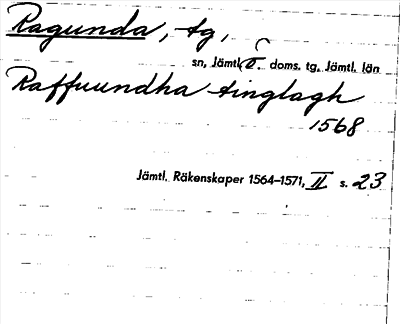 Ragunda, tg,
sn, Jämtl. II. doms. tg, Jämtl. län
Raffuundha tinglagh
1568
Jämtl. Räkenskaper 1564–1571, II s. 23